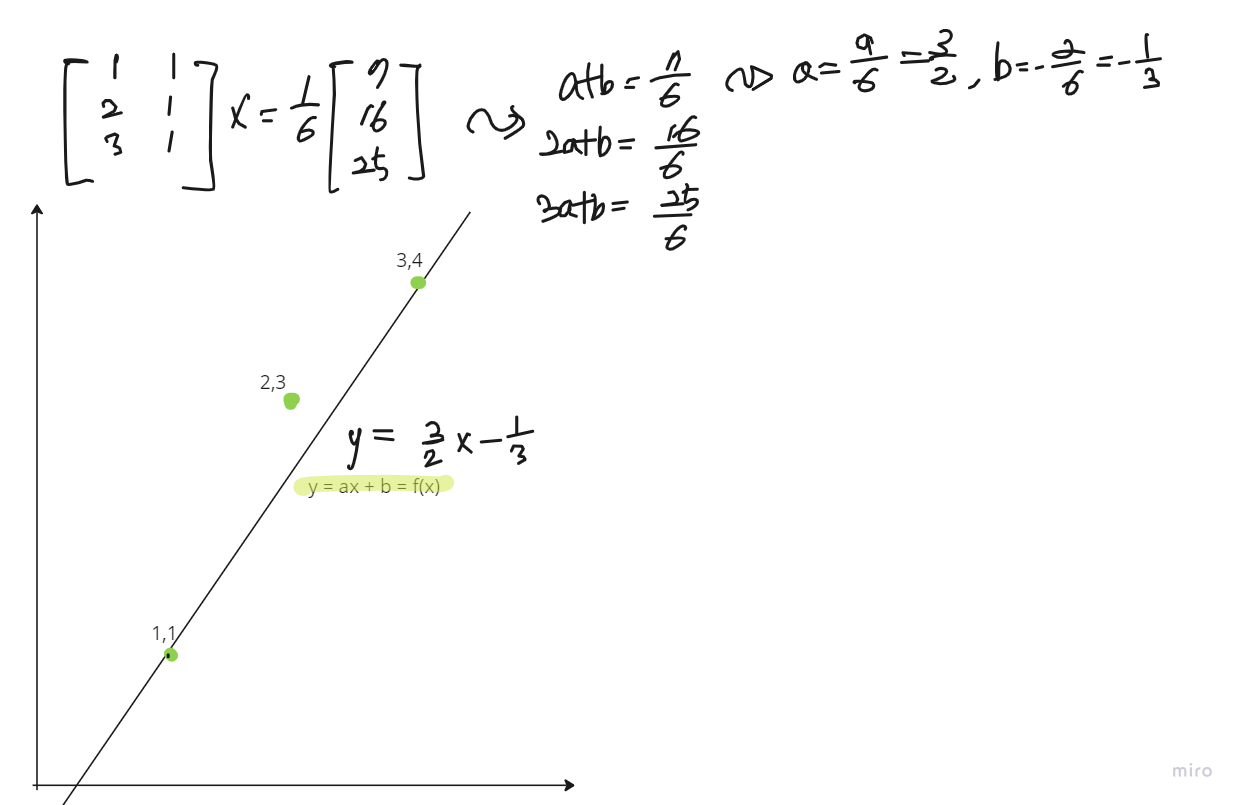 [1 1; 2 1; 3 1] x = 1/6 [7; 16; 25] ⇝ a+b = 7/6 ⇝ a = 9/6 = 3/2, b = -2/6 = -1/3
2a+b = 16/6
3a+b = 25/6
3,4
2,3
y = 3/2 x - 1/3
y = ax + b = f(x)
1,1
miro